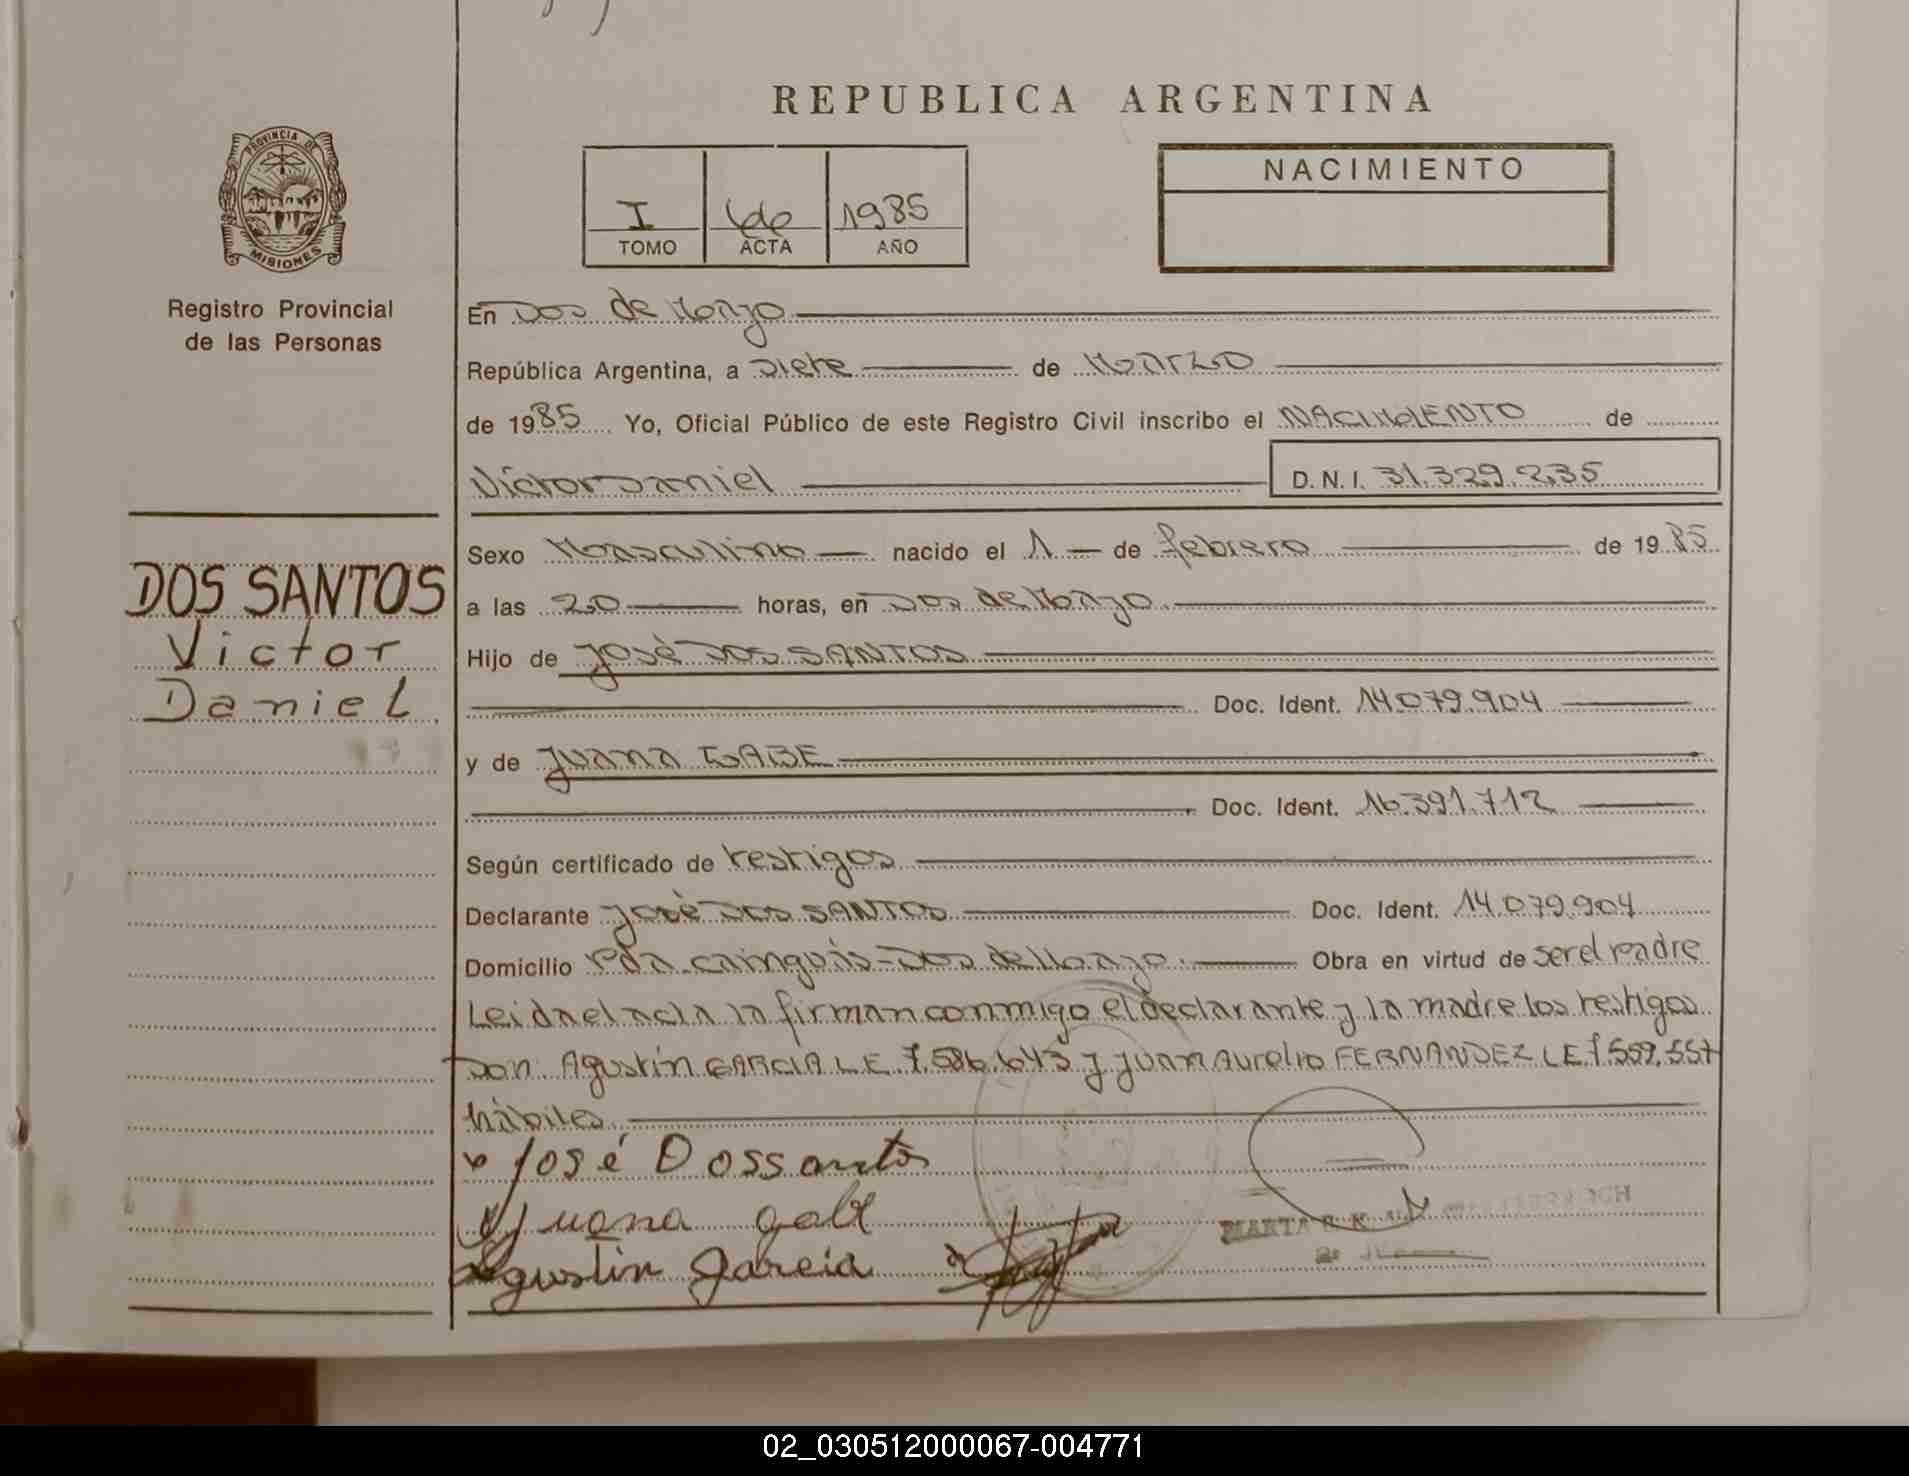 REPUBLICA ARGENTINA
PROVINCIA DE
MISIONES
Registro Provincial
de las Personas
I
TOMO
66
ACTA
1985
AÑO
NACIMIENTO
En Dos de Mayo
República Argentina, a siete de Marzo
de 1985 Yo, Oficial Público de este Registro Civil inscribo el NACIMIENTO de
Víctor Daniel D.N.I. 31.329.235
DOS SANTOS
Victor
Daniel
Sexo Masculino nacido el 1 de febrero de 1985
a las 20 horas, en Dos de Mayo
Hijo de José DOS SANTOS
Doc. Ident. 14.079.904
y de Juana GABE
Doc. Ident. 16.391.712
Según certificado de testigos
Declarante José Dos SANTOS Doc. Ident. 14.079.904
Domicilio Pda. cainguás-Dos de Mayo. Obra en virtud de ser el padre
Leída el acta la firman conmigo el declarante y la madre los testigos
Don Agustín GARCIA L.E 7.586.643 y Juan Aurelio FERNANDEZ L.E 7.559.557
hábiles
José Dossantos
Juana gabe
Agustin Garcia
MARTA
02_030512000067-004771